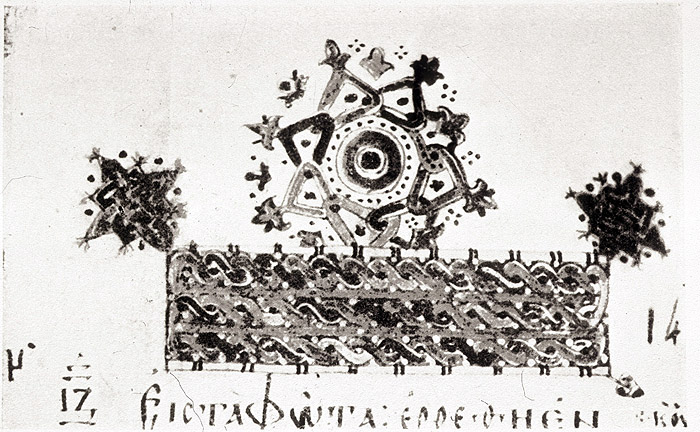 14
17
ΕΙϹ ΤΑ ΦѠΤΑ: ΕΡΡΕΘΗ ΕΝ